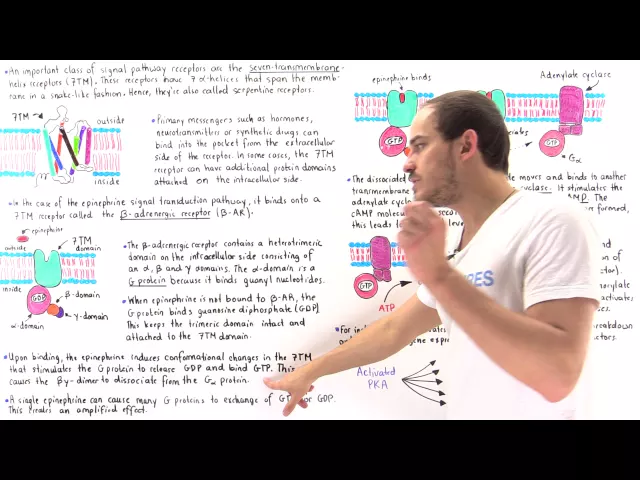 •An important class of signal pathway receptors are the seven-transmembrane-
helix receptors (7TM). These receptors have 7 α-helices that span the memb-
rane in a snake-like fashion. Hence, they're also called serpentine receptors.
7TM
outside
inside
•Primary messengers such as hormones,
neurotransmitters or synthetic drugs can
bind into the pocket from the extracellular
side of the receptor. In some cases, the 7TM
receptor can have additional protein domains
attached on the intracellular side.
•In the case of the epinephrine signal transduction pathway, it binds onto a
7TM receptor called the β-adrenergic receptor (β-AR).
epinephrine
outside
7TM
domain
inside
GDP
β-domain
γ-domain
α-domain
•The β-adrenergic receptor contains a heterotrimeric
domain on the intracellular side consisting of
an α, β and γ domains. The α-domain is a
G protein because it binds guanyl nucleotides.
•When epinephrine is not bound to β-AR, the
G protein binds guanosine diphosphate (GDP)
This keeps the trimeric domain intact and
attached to the 7TM domain.
•Upon binding, the epinephrine induces conformational changes in the 7TM
that stimulates the G protein to release GDP and bind GTP. This
causes the βγ-dimer to dissociate from the Gα protein.
•A single epinephrine can cause many G proteins to exchange of for GDP.
This creates an amplified effect.
epinephrine binds
Adenylate cyclase
GTP
GTP
Gα
•The dissociated moves and binds to another
transmembrane It stimulates the
adenylate cyc The
cAMP molecul are formed,
this leads t
GTP
ATP
•For in
Activated
PKA